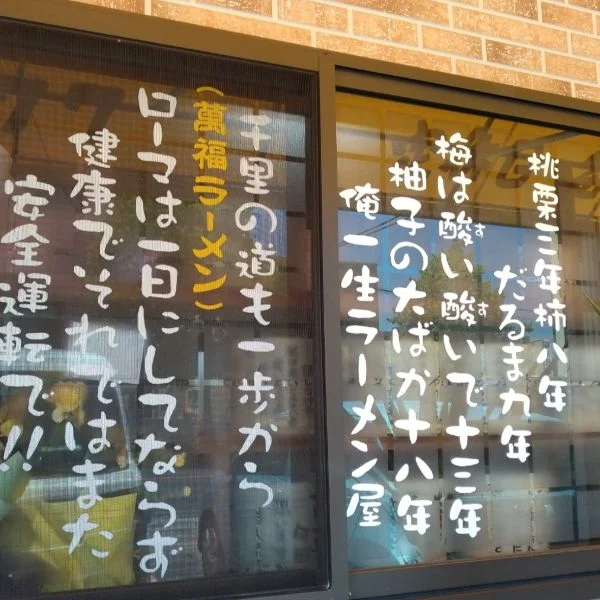 桃栗三年柿八年
だるま九年
梅は酸い酸いで十三年
す
す
柚子のたばか十八年
俺一生ラーメン屋
千里の道も一歩から
(萬福ラーメン)
ローマは一日にしてならず
健康でそれではまた
安全運転で!!